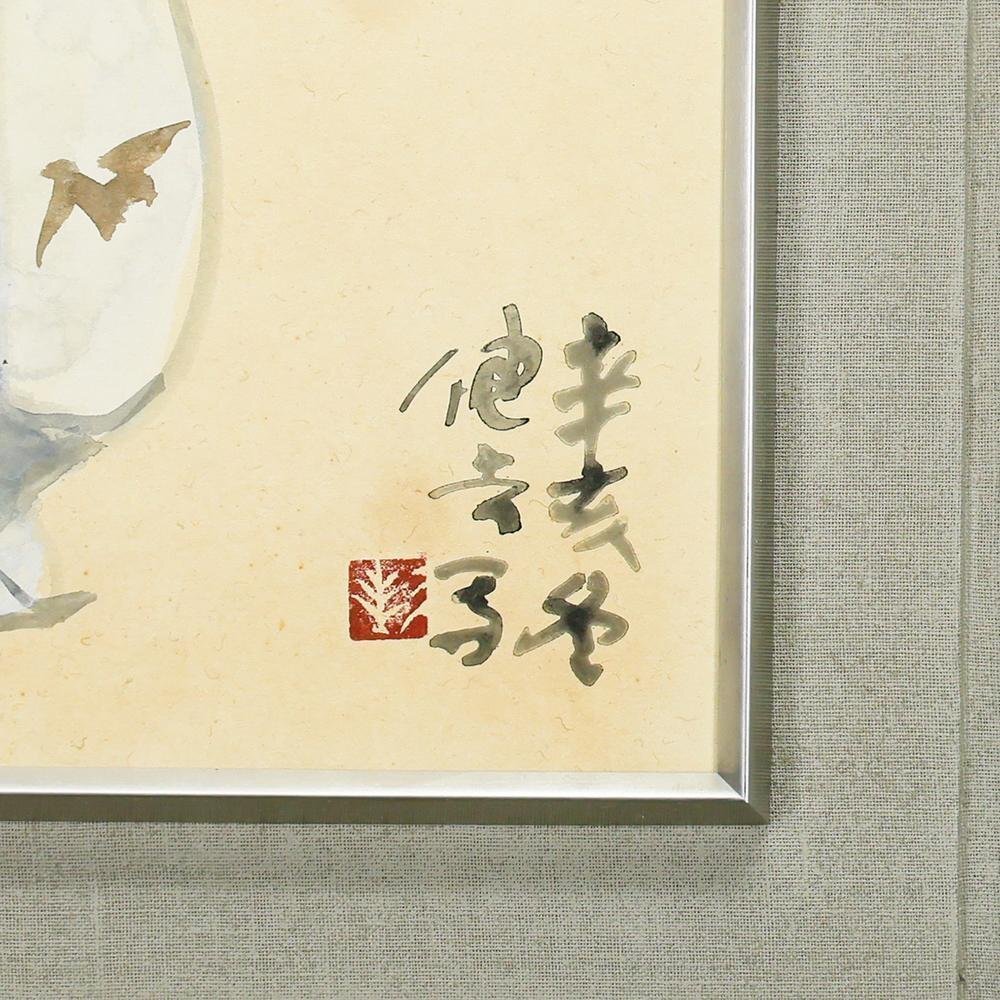 辛亥冬
健吉写